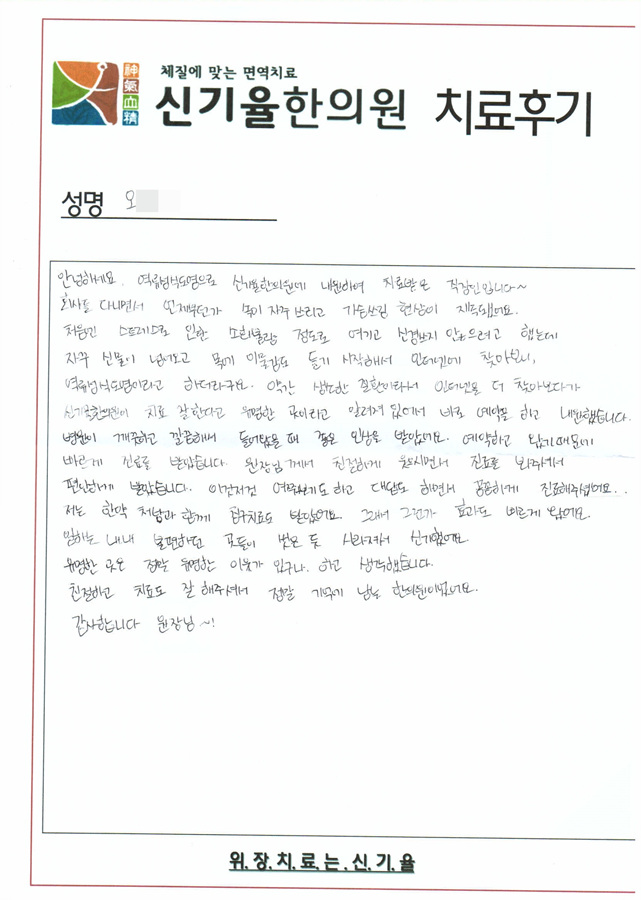 神氣血精
체질에 맞는 면역치료
신기율한의원 치료후기
성명 오
안녕하세요. 역류성식도염으로 신기율한의원에 내원하여 치료받은 직장인입니다~
회사를 다니면서 언제부턴가 목이 자주 쓰리고 가슴쓰림 현상이 지속됐어요.
처음엔 스트레스로 인한 소화불량 정도로 여기고 신경쓰지 않으려고 했는데
자꾸 신물이 넘어오고 목에 이물감도 들기 시작해서 인터넷에 찾아보니,
역류성식도염이라고 하더라구요. 약간 생소한 질환이라서 인터넷을 더 찾아보다가
신기율한의원이 치료 잘한다고 유명한 곳이라고 알려져 있어서 바로 예약을 하고 내원했습니다.
병원이 깨끗하고 깔끔해서 들어갔을 때 좋은 인상을 받았어요. 예약하고 왔기때문에
빠르게 진료를 받았습니다. 원장님께서 친절하게 웃으시면서 진료를 봐주셔서
편안하게 받았습니다. 이것저것 여쭤보기도 하고 대답도 하면서 꼼꼼하게 진료해주셨어요..
저는 한약 처방과 함께 침구치료도 받았어요. 그래서 그런가 효과도 빠르게 봤어요.
일하는 내내 불편하던 곳들이 씻은 듯 사라져서 신기했어요
유명한 곳은 정말 유명한 이유가 있구나. 하고 생각했습니다.
친절하고 치료도 잘 해주셔서 정말 기억에 남는 한의원이었어요.
감사합니다 원장님~!
위.장.치.료.는.신.기.율